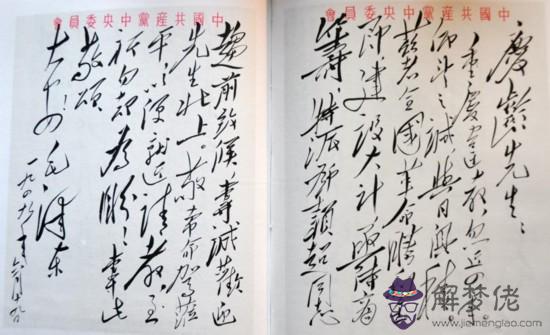 中國共產黨中央委員會
慶齡先生：
重慶違教，忽近四年。
仰望之誠，與日俱積。
茲者全國革命勝利在
即，建設大計，亟待商
籌，特派鄧穎超同志
中國共產黨中央委員會
趨前致候，專誠歡迎
先生北上。敬希命駕蒞
平，以便就近請教，至
祈勿却為盼！專此
敬頌
大安！
毛澤東
一九四九年六月十九日
解夢佬
www.jiemenglao.com